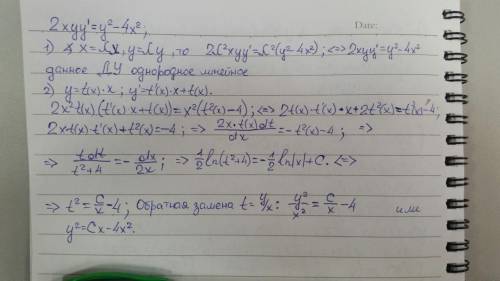 Date:
2xyy' = y² - 4x²;
1) ∢ x = λx, y = λy, то 2λ²xyy' = λ²(y² - 4x²); <=> 2xyy' = y² - 4x²
данное ДУ однородное линейное
2) y = t(x)·x; y' = t'(x)·x + t(x).
2x² t(x)(t'(x)·x + t(x)) = x²(t²(x) - 4); <=> 2t(x)·t'(x)·x + 2t²(x) = t²(x) - 4;
2x·t(x)·t'(x) + t²(x) = -4; => 2x·t(x)dt/dx = -t²(x) - 4; =>
=> tdt/t²+4 = - dx/2x; => 1/2 ln(t²+4) = -1/2 ln|x| + C. <=>
=> t² = C/x - 4; Обратная замена t = y/x: y²/x² = C/x - 4 или
y² = Cx - 4x².